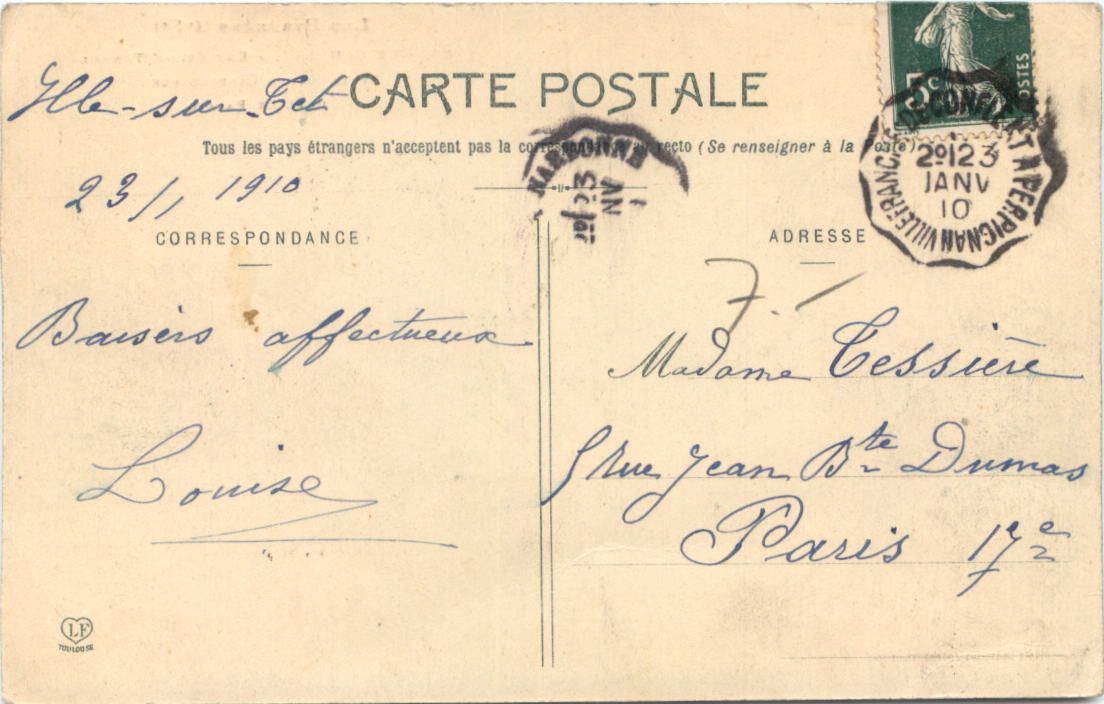 Ille-sur-Tet
CARTE POSTALE
Tous les pays étrangers n'acceptent pas la correspondance au recto (Se renseigner à la Poste)
23/1 1910
CORRESPONDANCE
ADRESSE
5c
POSTES
VILLEFRANCHE DE CONFLENT A PERPIGNAN
2º 23
JANV
10
NARBONNE
7.-
Baisers affectueux
Louise
Madame Tessière
5 Rue Jean Bte Dumas
Paris 17e
LF
TOULOUSE